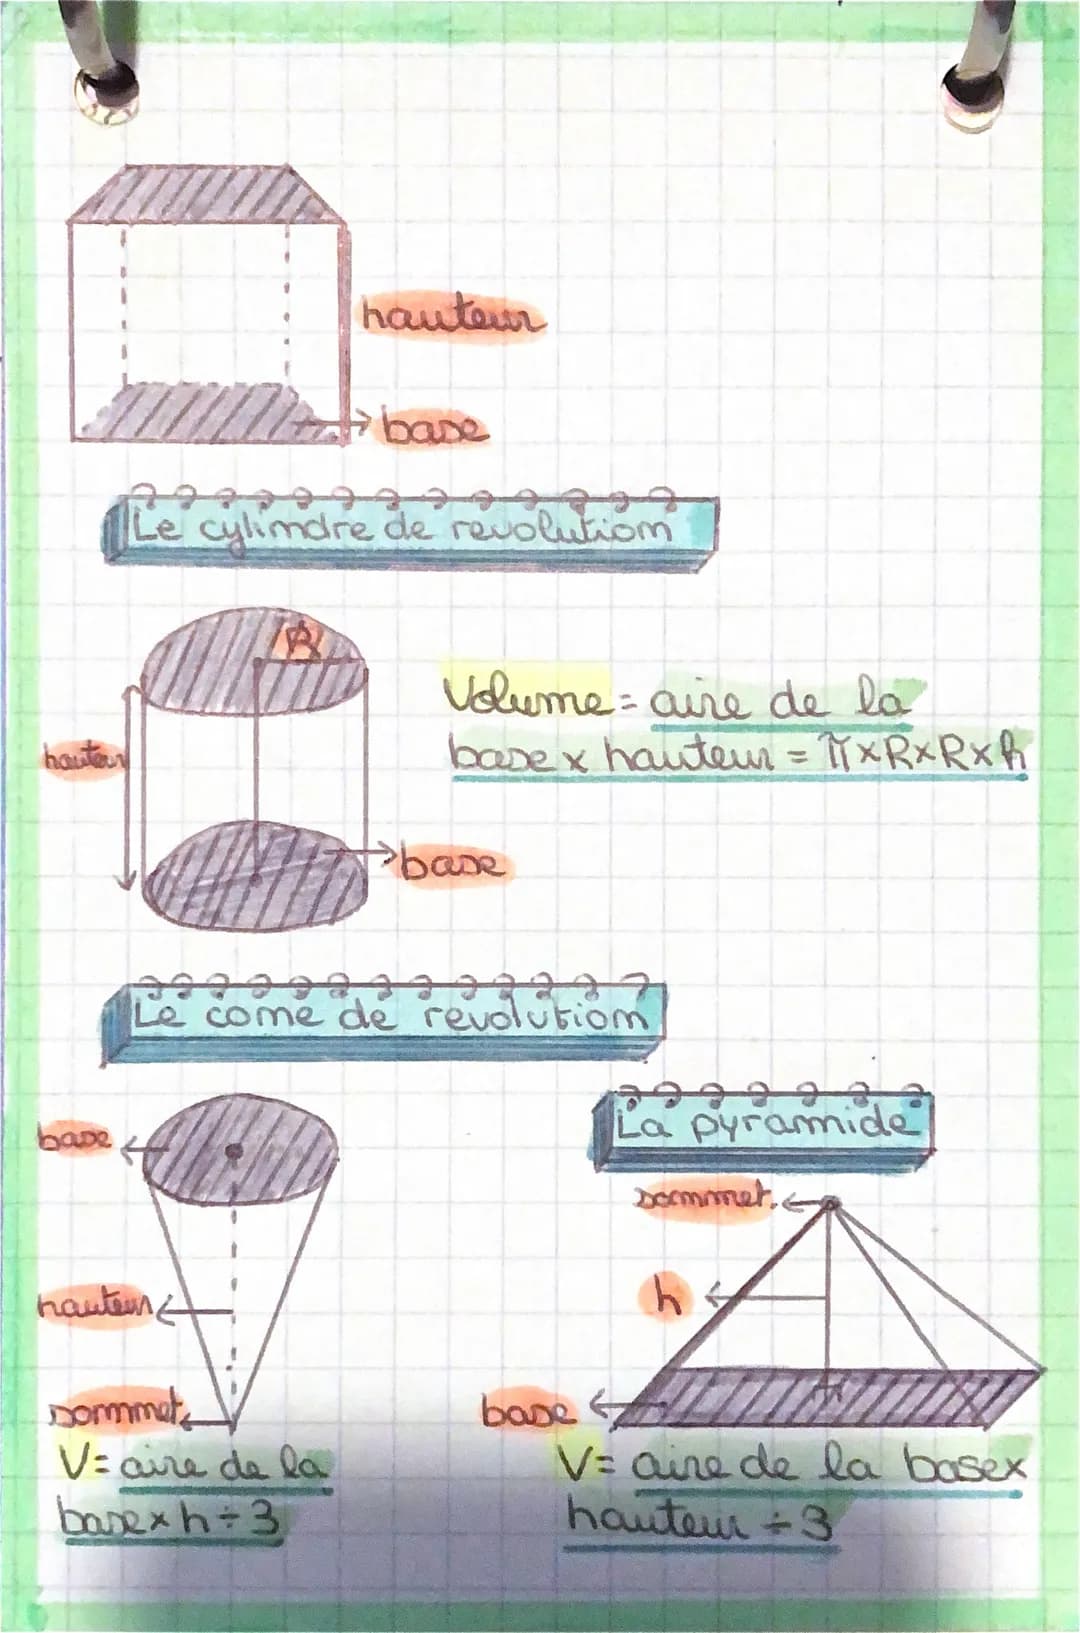 hauteur
base
Le cylindre de revolution
R
hauteur
Volume = aire de la
base x hauteur = π×R×R×h
base
Le cone de revolution
base
hauteur
sommet
V= aire de la
base x h ÷ 3
La pyramide
sommet.
h
base
V= aire de la basex
hauteur ÷ 3